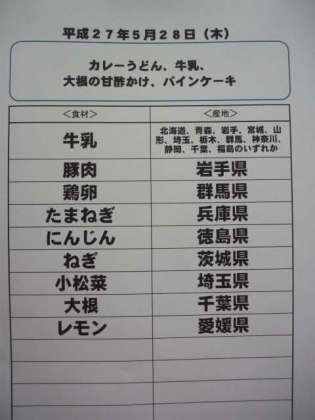 平成27年5月28日（木）
カレーうどん、牛乳、
大根の甘酢かけ、パインケーキ
＜食材＞ ＜産地＞
牛乳 北海道、青森、岩手、宮城、山
形、埼玉、栃木、群馬、神奈川、
静岡、千葉、福島のいずれか
豚肉 岩手県
鶏卵 群馬県
たまねぎ 兵庫県
にんじん 徳島県
ねぎ 茨城県
小松菜 埼玉県
大根 千葉県
レモン 愛媛県